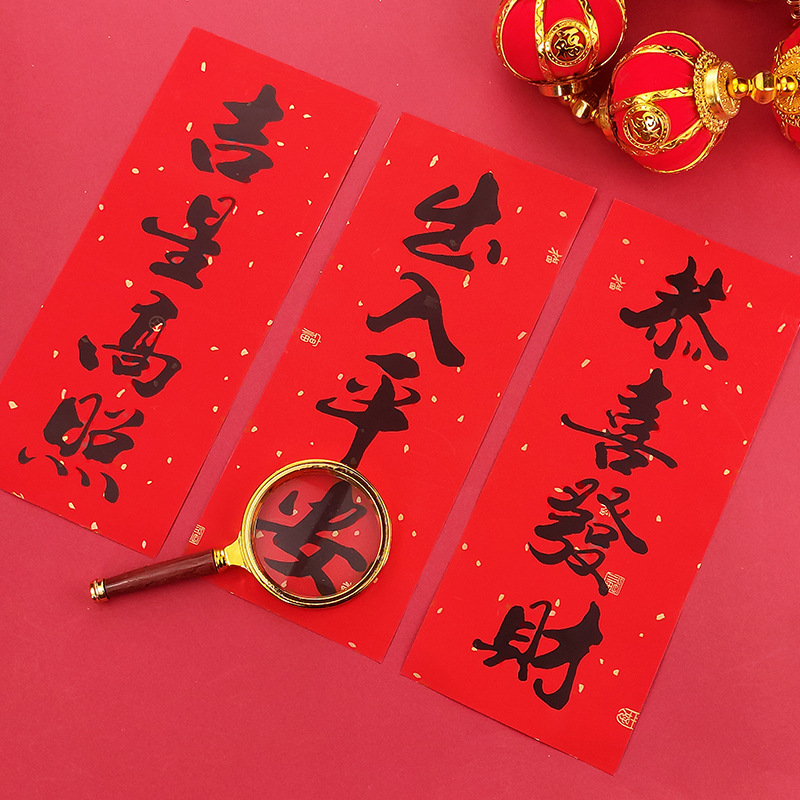 吉星高照
出入平安
恭喜發財